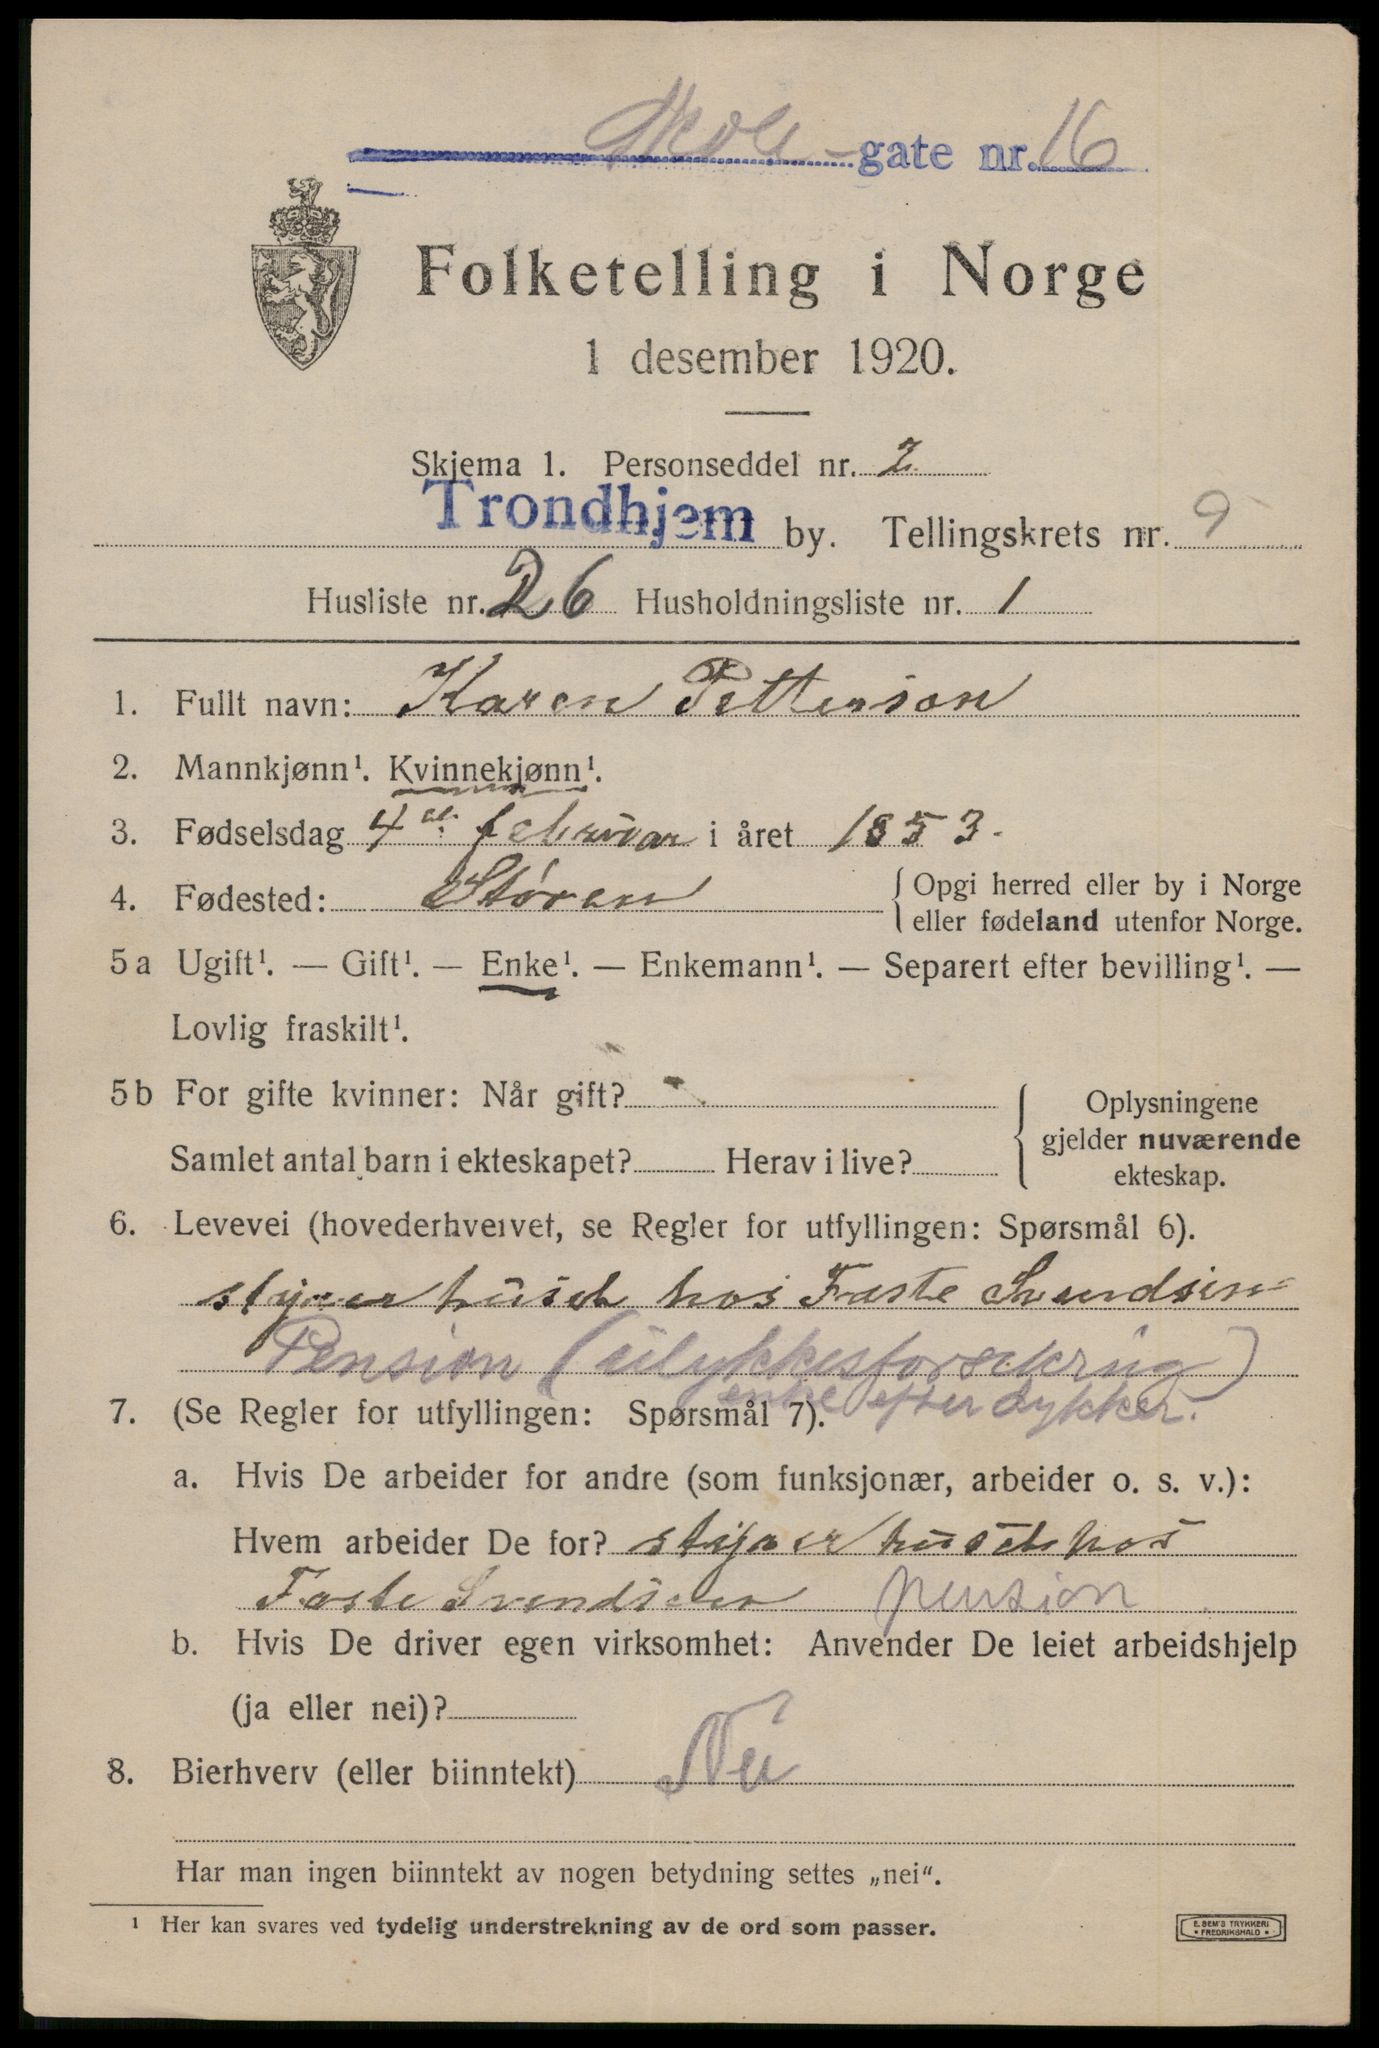 Skole-gate nr. 16
Folketelling i Norge
1 desember 1920.
Skjema 1. Personseddel nr. 2
Trondhjem by. Tellingskrets nr. 9
Husliste nr. 26 Husholdningsliste nr. 1
1. Fullt navn: Karen Petterson
2. Mannkjønn¹. Kvinnekjønn¹.
3. Fødselsdag 4de februar i året 1853.
4. Fødested: Støren { Opgi herred eller by i Norge
eller fødeland utenfor Norge.
5a Ugift¹. — Gift¹. — Enke¹. — Enkemann¹. — Separert efter bevilling¹. —
Lovlig fraskilt¹.
5b For gifte kvinner: Når gift?
Samlet antal barn i ekteskapet? Herav i live?
Oplysningene
gjelder nuværende
ekteskap.
6. Levevei (hovederhvervet, se Regler for utfyllingen: Spørsmål 6).
styrer huset hos Faste Svendsen
Pension (ulykkesforsekring)
enke efter dykker.
7. (Se Regler for utfyllingen: Spørsmål 7).
a. Hvis De arbeider for andre (som funksjonær, arbeider o. s. v.):
Hvem arbeider De for? styrer huset hos
Faste Svendsen pension
b. Hvis De driver egen virksomhet: Anvender De leiet arbeidshjelp
(ja eller nei)?
8. Bierhverv (eller biinntekt) Nei
Har man ingen biinntekt av nogen betydning settes „nei“.
¹ Her kan svares ved tydelig understrekning av de ord som passer.
E. SEM'S TRYKKERI
FREDRIKSHALD